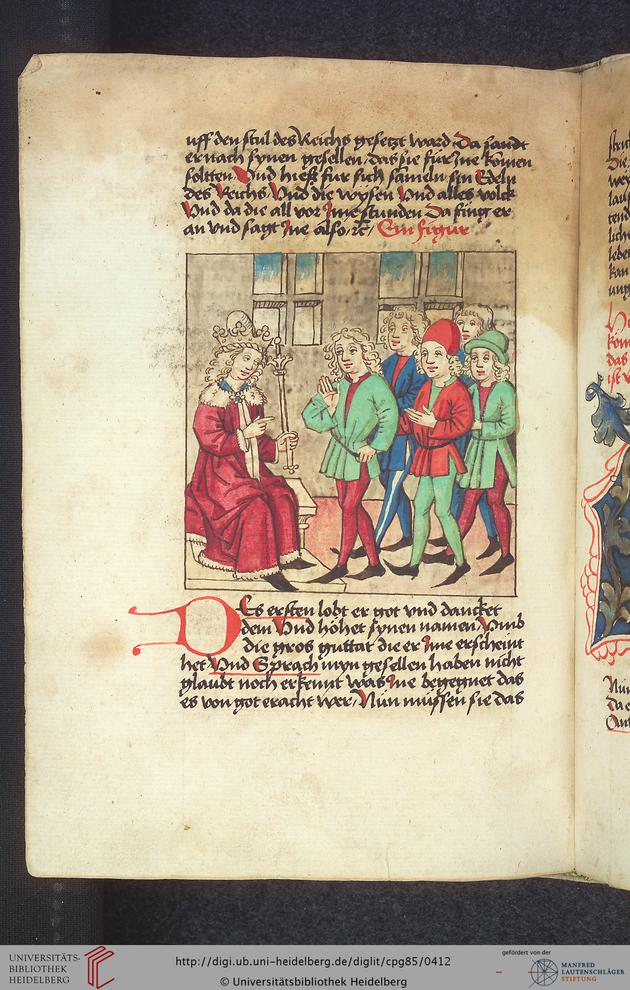 uff den stul des Reichs gesetzt ward Da sandt
er nach synen gesellen / das sie fur jne komen
soltten Vnd hieß fur sich sameln sin Edeln
des Reichs Vnd die wysen Vnd alles volck
Vnd da die all vor jme stunden Da fing er
an vnd sagt jne also / rc / Ein figur
DEs ersten lobt er got vnd dancket
dem Vnd höhet synen namen / Vmb
die gros guttat die er jme erscheint
het Vnd Sprach myn gesellen haben nicht
glaubt noch erkennt was jne begegnet das
es von got eracht wer / Nün müssen sie das
Nün
UNIVERSITÄTS-
BIBLIOTHEK
HEIDELBERG
http://digi.ub.uni-heidelberg.de/diglit/cpg85/0412
© Universitätsbibliothek Heidelberg
gefördert von der
MANFRED
LAUTENSCHLÄGER
STIFTUNG